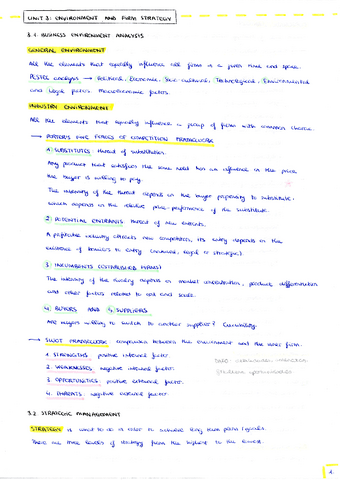 UNIT 3: ENVIRONMENT AND FIRM STRATEGY
3.1. BUSINESS ENVIRONMENT ANALYSIS
GENERAL ENVIRONMENT
All the elements that equally influence all firms in a given time and space.
PESTEL analysis → Political, Economic, Socio-cultural, Technological, Environmental
and Legal factors. Macroeconomic factors.
INDUSTRY ENVIRONMENT
All the elements that equally influence a group of firms with common
→ PORTER'S FIVE FORCES OF COMPETITION FRAMEWORK
1. SUBSTITUTES: threat of substitution.
Any product that satisfies the same need has an influence in the price
the buyer is willing to pay.
The intensity of the threat depends on the buyer propensity to substitute,
which depends on the relative price-performance of the substitute.
2. POTENTIAL ENTRANTS: threat of new entrants.
A profitable industry attracts new competitors, its entry depends on the
existence of barriers to entry (structural, legal or strategic).
3. INCUMBENTS (ESTABLISHED FIRMS)
The intensity of the rivalry depends on market concentration, product differentiation
and other factors related to cost and scale.
4. BUYERS AND 5. SUPPLIERS
Are buyers willing to switch to another supplier?
→ SWOT FRAMEWORK: comparison between the environment and the inner firm.
1. STRENGTHS: positive internal factor.
2. WEAKNESSES: negative internal factor.
3. OPPORTUNITIES: positive external factor.
4. THREATS: negative external factor.
3.2. STRATEGIC MANAGEMENT
STRATEGY is what to do in order to achieve long term plans/goals.
There are three levels of strategy from the highest to the lowest.